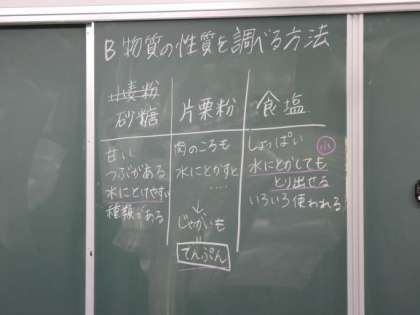 B 物質の性質を調べる方法
小麦粉
砂糖
甘い
つぶがある
水にとけやすい
種類がある
片栗粉
肉のころも
水にとかすと
‥‥
↓
じゃがいも
でんぷん
食塩
しょっぱい
小
水にとかしても
とり出せる
いろいろ使われる